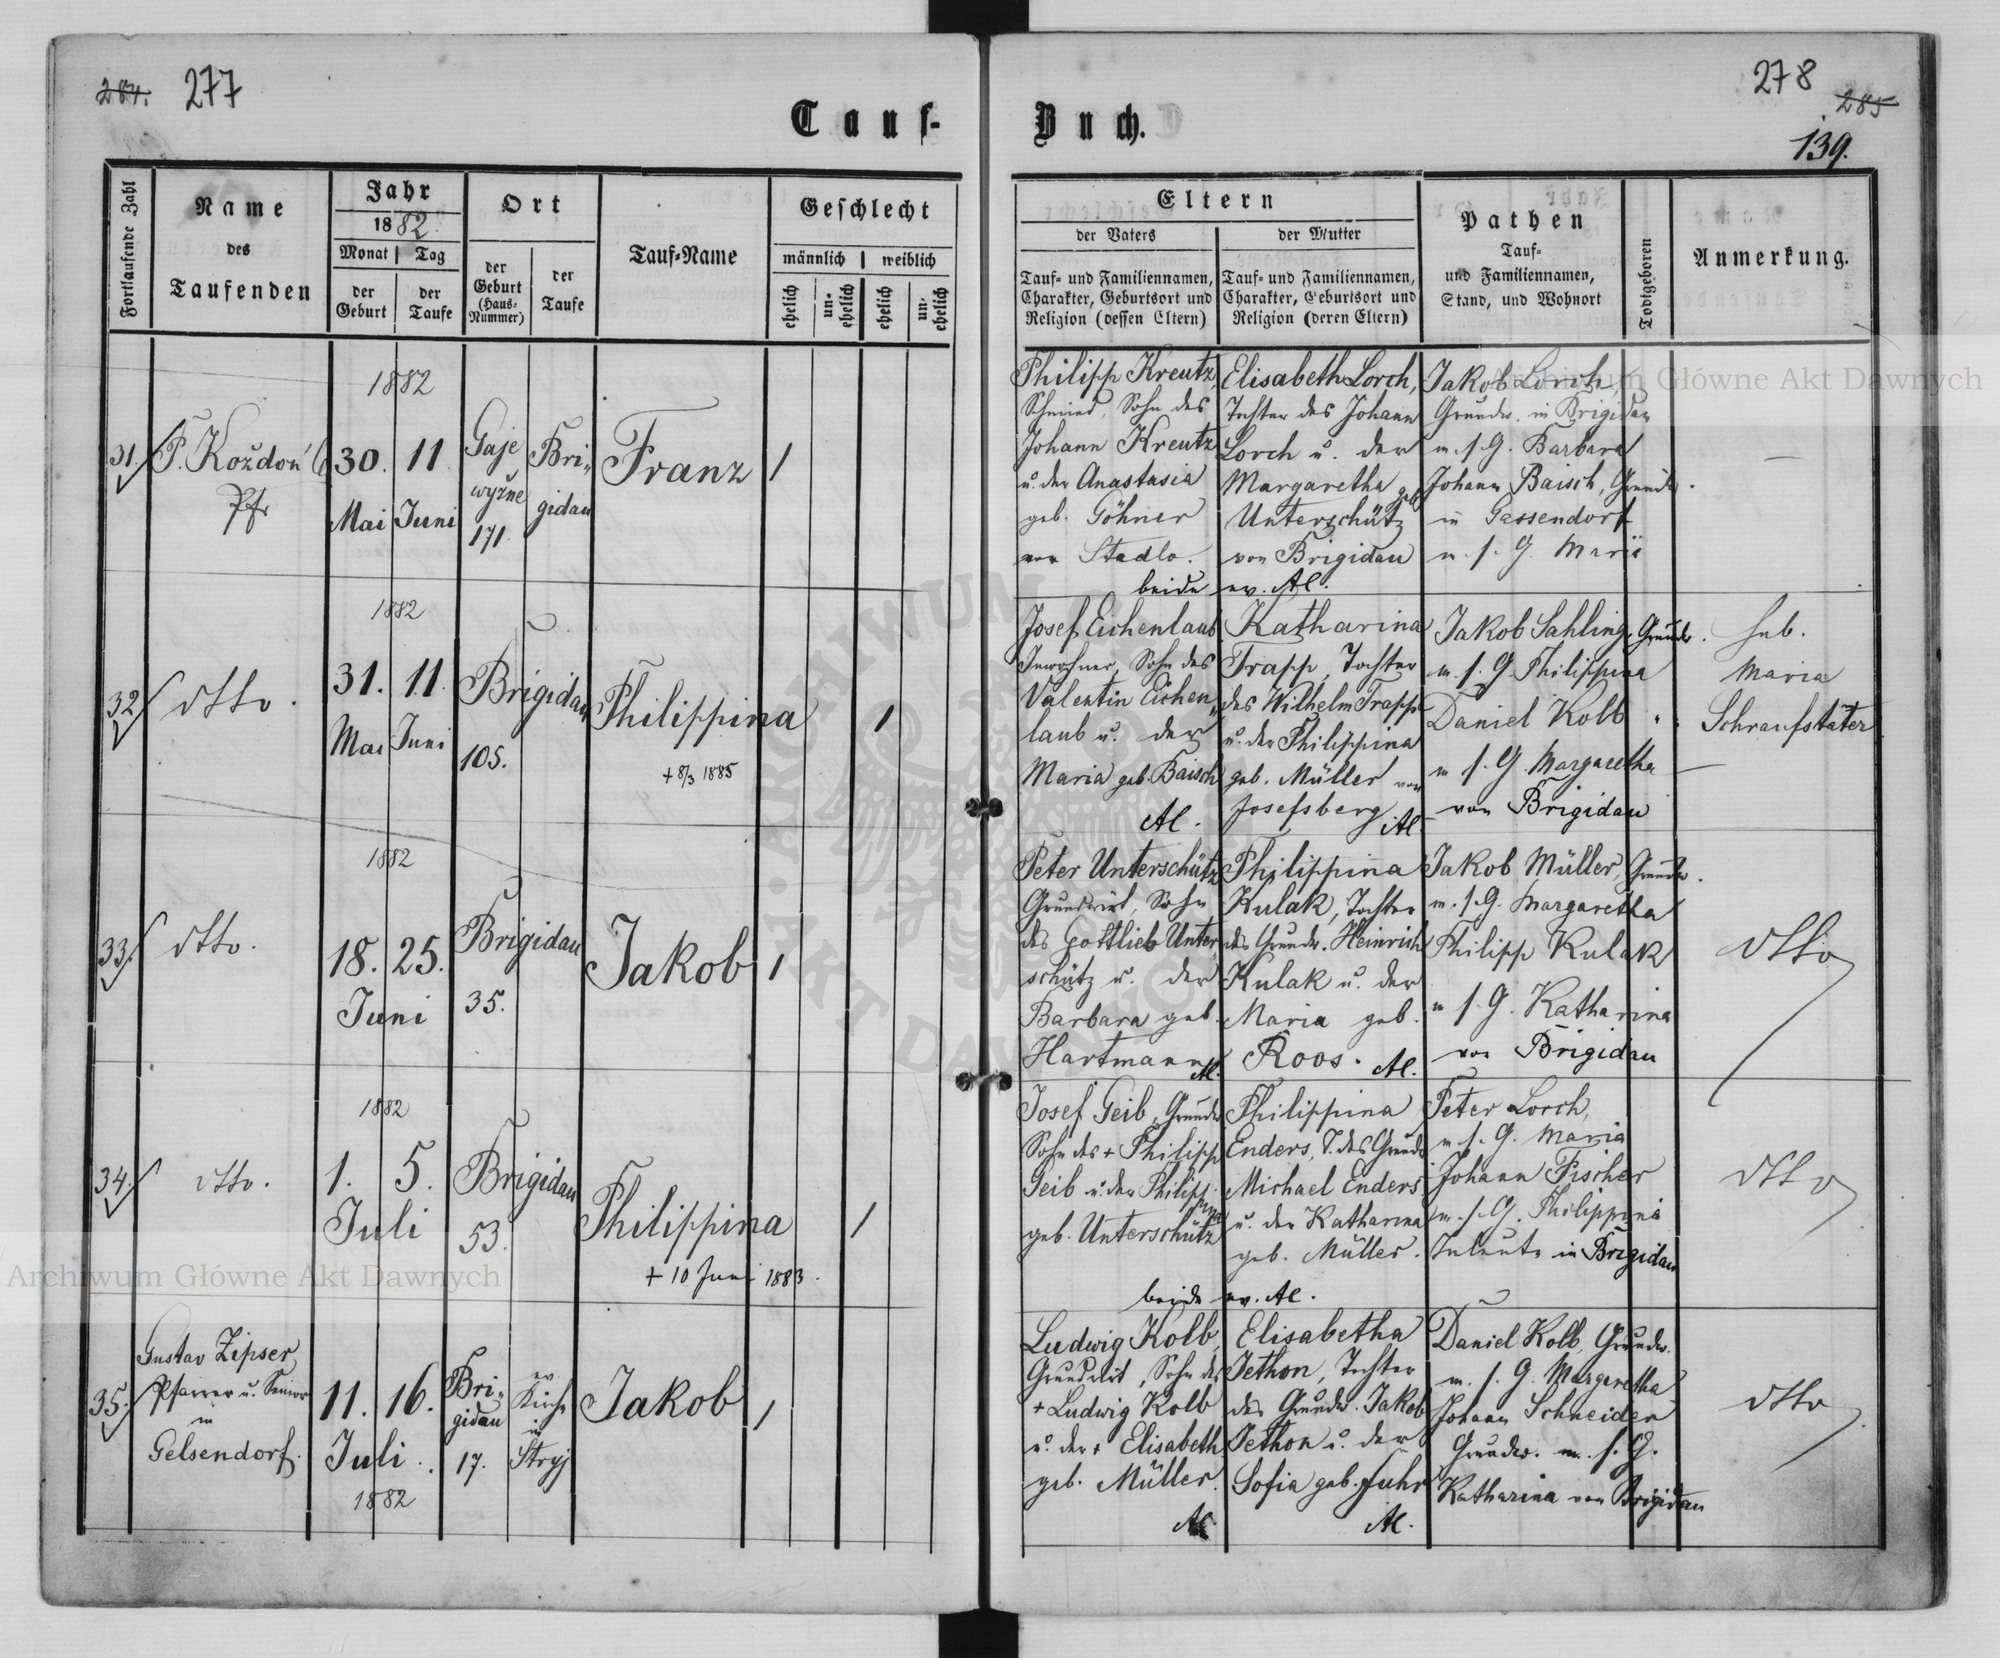 284. 277
278
285
139.
Tauf-
Buch.
Fortlaufende Zahl
Name
des
Taufenden
Jahr
1882.
Monat
Tag
der
Geburt
der
Taufe
Ort
der
Geburt
(Haus-
Nummer)
der
Taufe
Tauf-Name
Geschlecht
männlich
weiblich
ehelich
un-
ehelich
ehelich
un-
ehelich
Eltern
der Vaters
der Mutter
Tauf- und Familiennamen,
Charakter, Geburtsort und
Religion (dessen Eltern)
Tauf- und Familiennamen,
Charakter, Geburtsort und
Religion (deren Eltern)
Pathen
Tauf-
und Familiennamen,
Stand, und Wohnort
Todtgeboren
Anmerkung.
1882
31.
P. Koždoń
Pfr
30.
Mai
11
Juni
Gaje
wyżne
171.
Bri-
gidau
Franz
1
Philipp Kreutz,
Schmied, Sohn des
Johann Kreutz
u. der Anastasia
geb. Göhner
von Stadlo.
Elisabeth Lorch,
Tochter des Johann
Lorch u. der
Margaretha geb.
Unterschütz
von Brigidau
beide ev. AC.
Jakob Lorch,
Grundw. in Brigidau
m. s. G. Barbara
Johann Baisch, Grundw.
in Gassendorf
m. s. G. Marie
—
1882
32
dtto.
31.
Mai
11.
Juni
Brigidau
105.
Philippina
+ 8/3 1885
1
Josef Eichenlaub
Inwohner, Sohn des
Valentin Eichen-
laub u. der
Maria geb. Baisch
AC.
Katharina
Trapp, Tochter
des Wilhelm Trapp
u. der Philippina
geb. Müller von
Josefsberg AC
Jakob Sahling, Grundw.
m. s. G. Philippina
Daniel Kolb "
m s. G. Margaretha
von Brigidau
heb.
Maria
Schraufstäter
1882
33.
dtto.
18.
25.
Juni
Brigidau
35.
Jakob
1
Peter Unterschütz
Grundwirt, Sohn
des Gottlieb Unter-
schütz u. der
Barbara geb.
Hartmann AC.
Philippina
Kulak, Tochter
des Grundw. Heinrich
Kulak u. der
Maria geb.
Roos. AC.
Jakob Müller, Grundw.
m. s. G. Margaretha
Philipp Kulak
m s. G. Katharina
von Brigidau
dtto
1882
34.
dtto.
1.
5.
Juli
Brigidau
53.
Philippina
+ 10 Juni 1883.
1
Josef Geib, Grundw.
Sohn des + Philipp
Geib u. der Philippina
geb. Unterschütz
Philippina
Enders, T. des Grundw
Michael Enders
u. der Katharina
geb. Müller.
beide ev. AC.
Peter Lorch,
m. s. G. Maria
Johann Fischer
m. s. G. Philippina
in Brigidau
dtto
35.
Gustav Zipser
Pfarrer u. Senior
in
Gelsendorf.
11.
16.
Juli.
1882
Bri-
gidau
17.
ev
Kirche
in
Stryj
Jakob
1
Ludwig Kolb,
Grundwirt, Sohn des
+ Ludwig Kolb
u. der + Elisabeth
geb. Müller.
AC.
Elisabetha
Jethon, Tochter
des Grundw. Jakob
Jethon u. der
Sofia geb. Fuhr
AC.
Daniel Kolb, Grundw.
m. s. G. Margaretha
Johann Schneider
Grundw. m. s. G.
Katharina von Brigidau
dtto
Archiwum Główne Akt Dawnych
Archiwum Główne Akt Dawnych
ARCHIWUM
AKT DAWNYCH